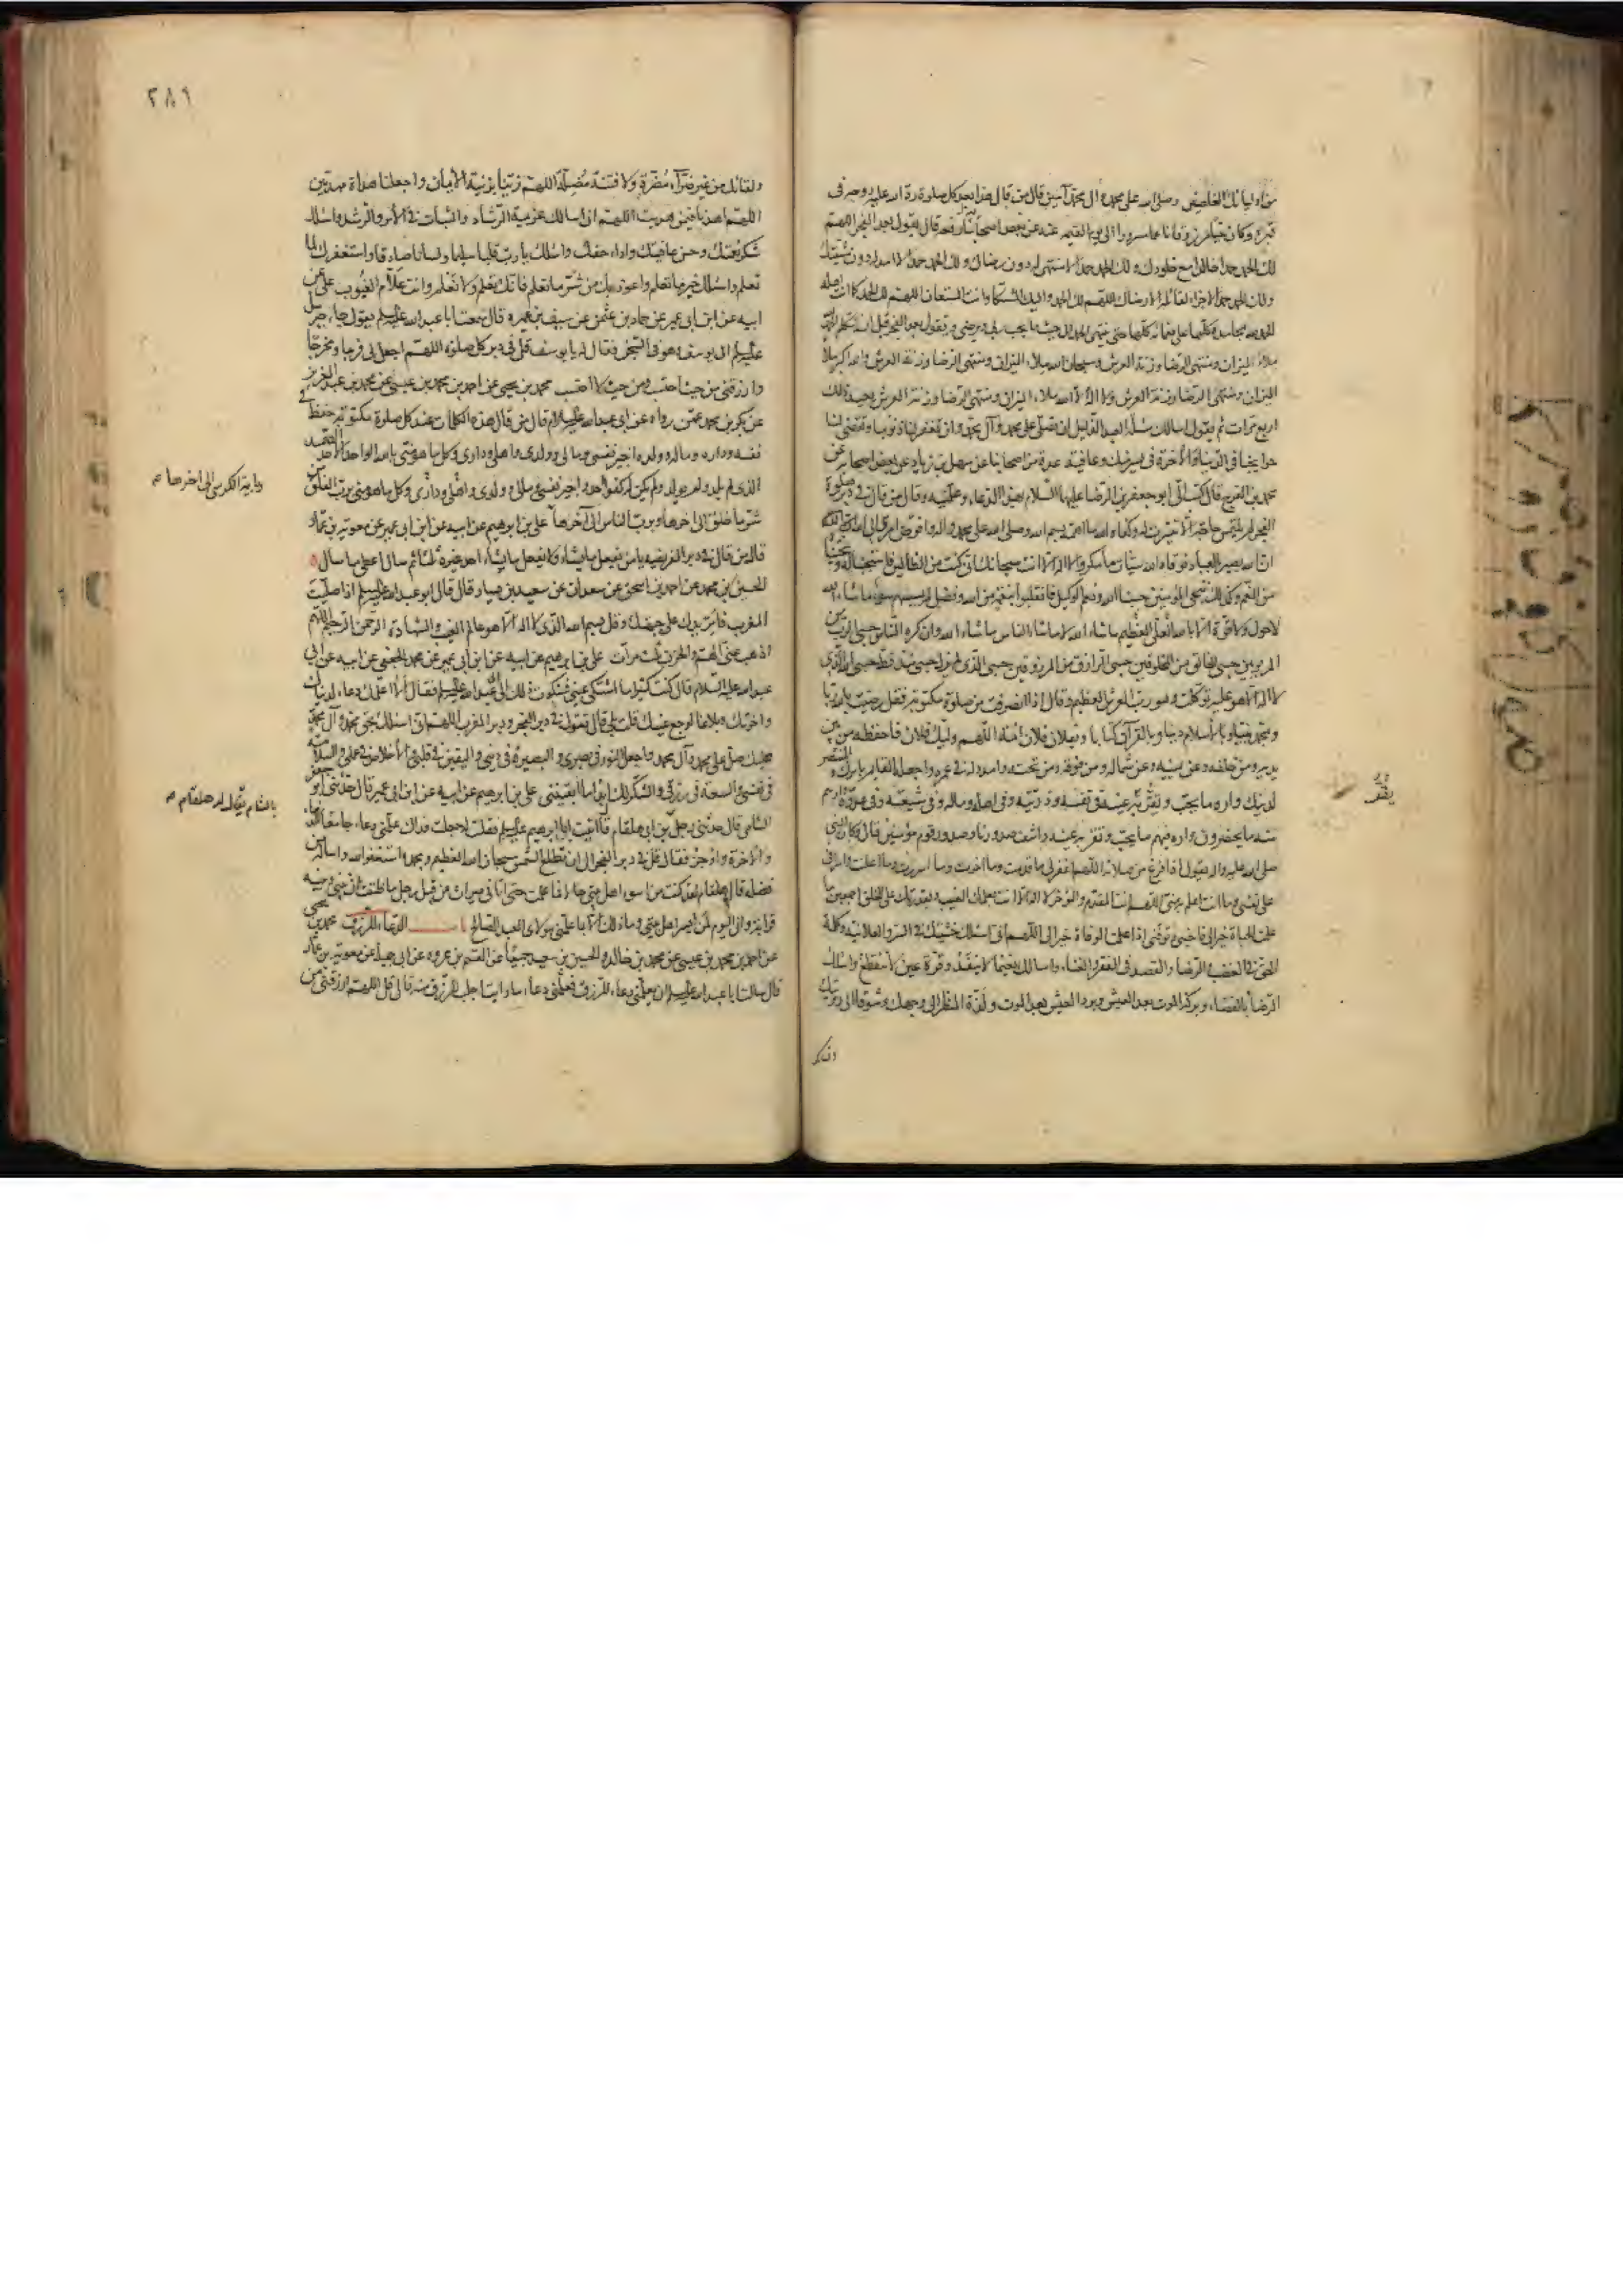 من اوليائك المخلصين وصلى الله على محمد وآل محمد آمين قال من قال هذا بعد كل صلوة رد الله عليه روحه في
قبره وكان حيا مرزوقا ناعما مسرورا الى يوم القيمة عنه عن بعض اصحابنا رفعه قال تقول بعد الفجر اللهم
لك الحمد حمدا خالدا مع خلودك ولك الحمد حمدا لا منتهى له دون رضاك ولك الحمد حمدا لا امد له دون مشيتك
ولك الحمد حمدا لا جزاء لقائله الا رضاك اللهم لك الحمد واليك المشتكى وانت المستعان اللهم لك الحمد كما انت اهله
الحمد لله بمحامده كلها على نعمائه كلها حتى ينتهى الحمد الى حيث ما يحب ربي ويرضى وتقول بعد الفجر قبل ان تتكلم الحمد لله
ملاء الميزان ومنتهى الرضا وزنة العرش وسبحان الله ملاء الميزان ومنتهى الرضا وزنة العرش والله اكبر ملا
الميزان ومنتهى الرضا وزنة العرش ولا اله الا الله ملاء الميزان ومنتهى الرضا وزنة العرش يعيد ذلك
اربع مرات ثم يقول اسالك مسألة العبد الذليل ان تصلي على محمد وآل محمد وان تغفر لنا ذنوبنا وتقضي لنا
حوايجنا في الدنيا والاخرة في يسر منك وعافية عدة من اصحابنا عن سهل بن زياد عن بعض اصحابه عن
محمد بن الفرج قال كتب الى ابو جعفر بن الرضا عليهما السلام بهذا الدعاء وعلمنيه وقال من قال في دبر صلوة
الفجر لم يلتمس حاجة الا تيسرت له وكفاه الله ما اهمه بسم الله وصلى الله على محمد واله وافوض امري الى الله
ان الله بصير بالعباد فوقاه الله سيئات ما مكروا لا اله الا انت سبحانك اني كنت من الظالمين فاستجبنا له ونجيناه
من الغم وكذلك ننجي المؤمنين حسبنا الله ونعم الوكيل فانقلبوا بنعمة من الله وفضل لم يمسسهم سوء ما شاء الله
لا حول ولا قوة الا بالله العلي العظيم ما شاء الله لا ما شاء الناس ما شاء الله وان كره الناس حسبي الرب من
المربوبين حسبي الخالق من المخلوقين حسبي الرازق من المرزوقين حسبي الذي لم يزل حسبي منذ قط حسبي الله الذي
لا اله الا هو عليه توكلت وهو رب العرش العظيم وقال اذا انصرفت من صلوة مكتوبة فقل رضيت بالله ربا
وبمحمد نبيا وبالاسلام دينا وبالقرآن كتابا وبفلان وفلان ائمة اللهم وليك فلان فاحفظه من بين
يديه ومن خلفه وعن يمينه وعن شماله ومن فوقه ومن تحته وامدد له في عمره واجعله القايم بامرك والمنتصر
لدينك واره ما يحب وتقر به عينه في نفسه وذريته وفي اهله وماله وفي شيعته وفي عدوه وارهم
منه ما يحذرون واره فيهم ما يحب وتقر به عينه واشف صدورنا وصدور قوم مؤمنين قال وكان النبي
صلى الله عليه واله يقول اذا فرغ من صلاته اللهم اغفر لي ما قدمت وما اخرت وما اسررت وما اعلنت واسرافي
على نفسي وما انت اعلم به مني اللهم انت المقدم والمؤخر لا اله الا انت بعلمك الغيب وبقدرتك على الخلق اجمعين ما
علمت الحياة خيرا لي فاحيني وتوفني اذا علمت الوفاة خيرا لي اللهم اني اسئلك خشيتك في السر والعلانية وكلمة
الحق في الغضب والرضا والقصد في الفقر والغناء واسالك نعيما لا ينفد وقرة عين لا تنقطع واسالك
الرضا بالقضاء وبركة الموت بعد العيش وبرد العيش بعد الموت ولذة المنظر الى وجهك وشوقا الى رؤيتك
٢٨٩
ولقائك من غير ضراء مضرة ولا فتنة مضلة اللهم زينا بزينة الايمان واجعلنا هداة مهديين
اللهم اهدنا فيمن هديت اللهم اني اسالك عزيمة الرشاد والثبات في الامر والرشد واسئلك
شكر نعمتك وحسن عافيتك واداء حقك واسئلك يا رب قلبا سليما ولسانا صادقا واستغفرك لما
تعلم واسئلك خير ما تعلم واعوذ بك من شر ما تعلم فانك تعلم ولا نعلم وانت علام الغيوب علي عن
ابيه عن ابن ابي عمير عن حماد بن عثمن عن سيف بن عميرة قال سمعت ابا عبد الله عليه السلام يقول جاء جبرئيل
عليه السلام الى يوسف وهو في السجن فقال له يا يوسف قل في دبر كل صلوة اللهم اجعل لي فرجا ومخرجا
وارزقني من حيث احتسب ومن حيث لا احتسب محمد بن يحيى عن احمد بن محمد بن عيسى عن محمد بن عبد العزيز
عن بكر بن محمد عمن رواه عن ابي عبد الله عليه السلام قال من قال هذه الكلمات عند كل صلوة مكتوبة حفظ في
نفسه وداره وماله وولده اجير نفسي ومالي وولدي واهلي وداري وكل ما هو مني بالله الواحد الاحد الصمد
الذي لم يلد ولم يولد ولم يكن له كفوا احد واجير نفسي ومالي وولدي واهلي وداري وكل ما هو مني برب الفلق من
وباية الكرسي الى اخرها
شر ما خلق الى اخرها وبرب الناس الى آخرها علي بن ابرهيم عن ابيه عن ابن ابي عمير عن معوية بن عمار
قال من قال في دبر الفريضه يا من يفعل ما يشاء ولا يفعل ما يشاء احد غيره ثلثا ثم سال اعطي ما سال
الحسين بن محمد عن احمد بن اسحق عن سعدان عن سعيد بن يسار قال قال ابو عبد الله عليه السلام اذا صليت
المغرب فامر يدك على جبهتك وقل بسم الله الذي لا اله الا هو عالم الغيب والشهادة الرحمن الرحيم اللهم
اذهب عني الهم والحزن ثلث مرات علي بن ابرهيم عن ابيه عن ابن ابي عمير عن محمد الجعفي عن ابيه عن ابي
عبد الله عليه السلام قال كنت كثيرا ما اشتكي عيني فشكوت ذلك الى ابي عبد الله عليه السلام فقال الا اعلمك دعاء لدنياك
واخرتك وبلاغا لوجع عينيك قلت بلى قال تقول في دبر الفجر ودبر المغرب اللهم اني اسئلك بحق محمد وآل محمد
عليك صل على محمد وآل محمد واجعل النور في بصري والبصيرة في ديني واليقين في قلبي والاخلاص في عملي والسلامة
في نفسي والسعة في رزقي والشكر لك ابدا ما ابقيتني علي بن ابرهيم عن ابيه عن ابن ابي عمير قال حدثني ابو جعفر
الشامي قال حدثني رجل بن ابي هلقام قال اتيت ابا ابرهيم عليه السلام فقلت له جعلت فداك علمني دعاء جامعا للدنيا
بالشام يقال له هلقام
والاخرة واوجز فقال قل في دبر الفجر الى ان تطلع الشمس سبحان الله العظيم وبحمده استغفر الله واساله من
فضله قال هلقام لقد كنت من اسوء اهل بيتي حالا فما علمت حتى اتاني ميراث من قبل رجل ما ظننت ان بيني وبينه
قرابة واني اليوم لمن ايسر اهل بيتي وما ذلك الا بما علمني مولاي العبد الصالح باب الدعاء للرزق محمد بن يحيى
عن احمد بن محمد بن عيسى عن محمد بن خالد والحسين بن سعيد جميعا عن القسم بن عروه عن ابي جميلة عن معوية بن عمار
قال سالت ابا عبد الله عليه السلام ان يعلمني دعاء للرزق فعلمني دعاء ما رايت اجلب للرزق منه قال قل اللهم ارزقني من